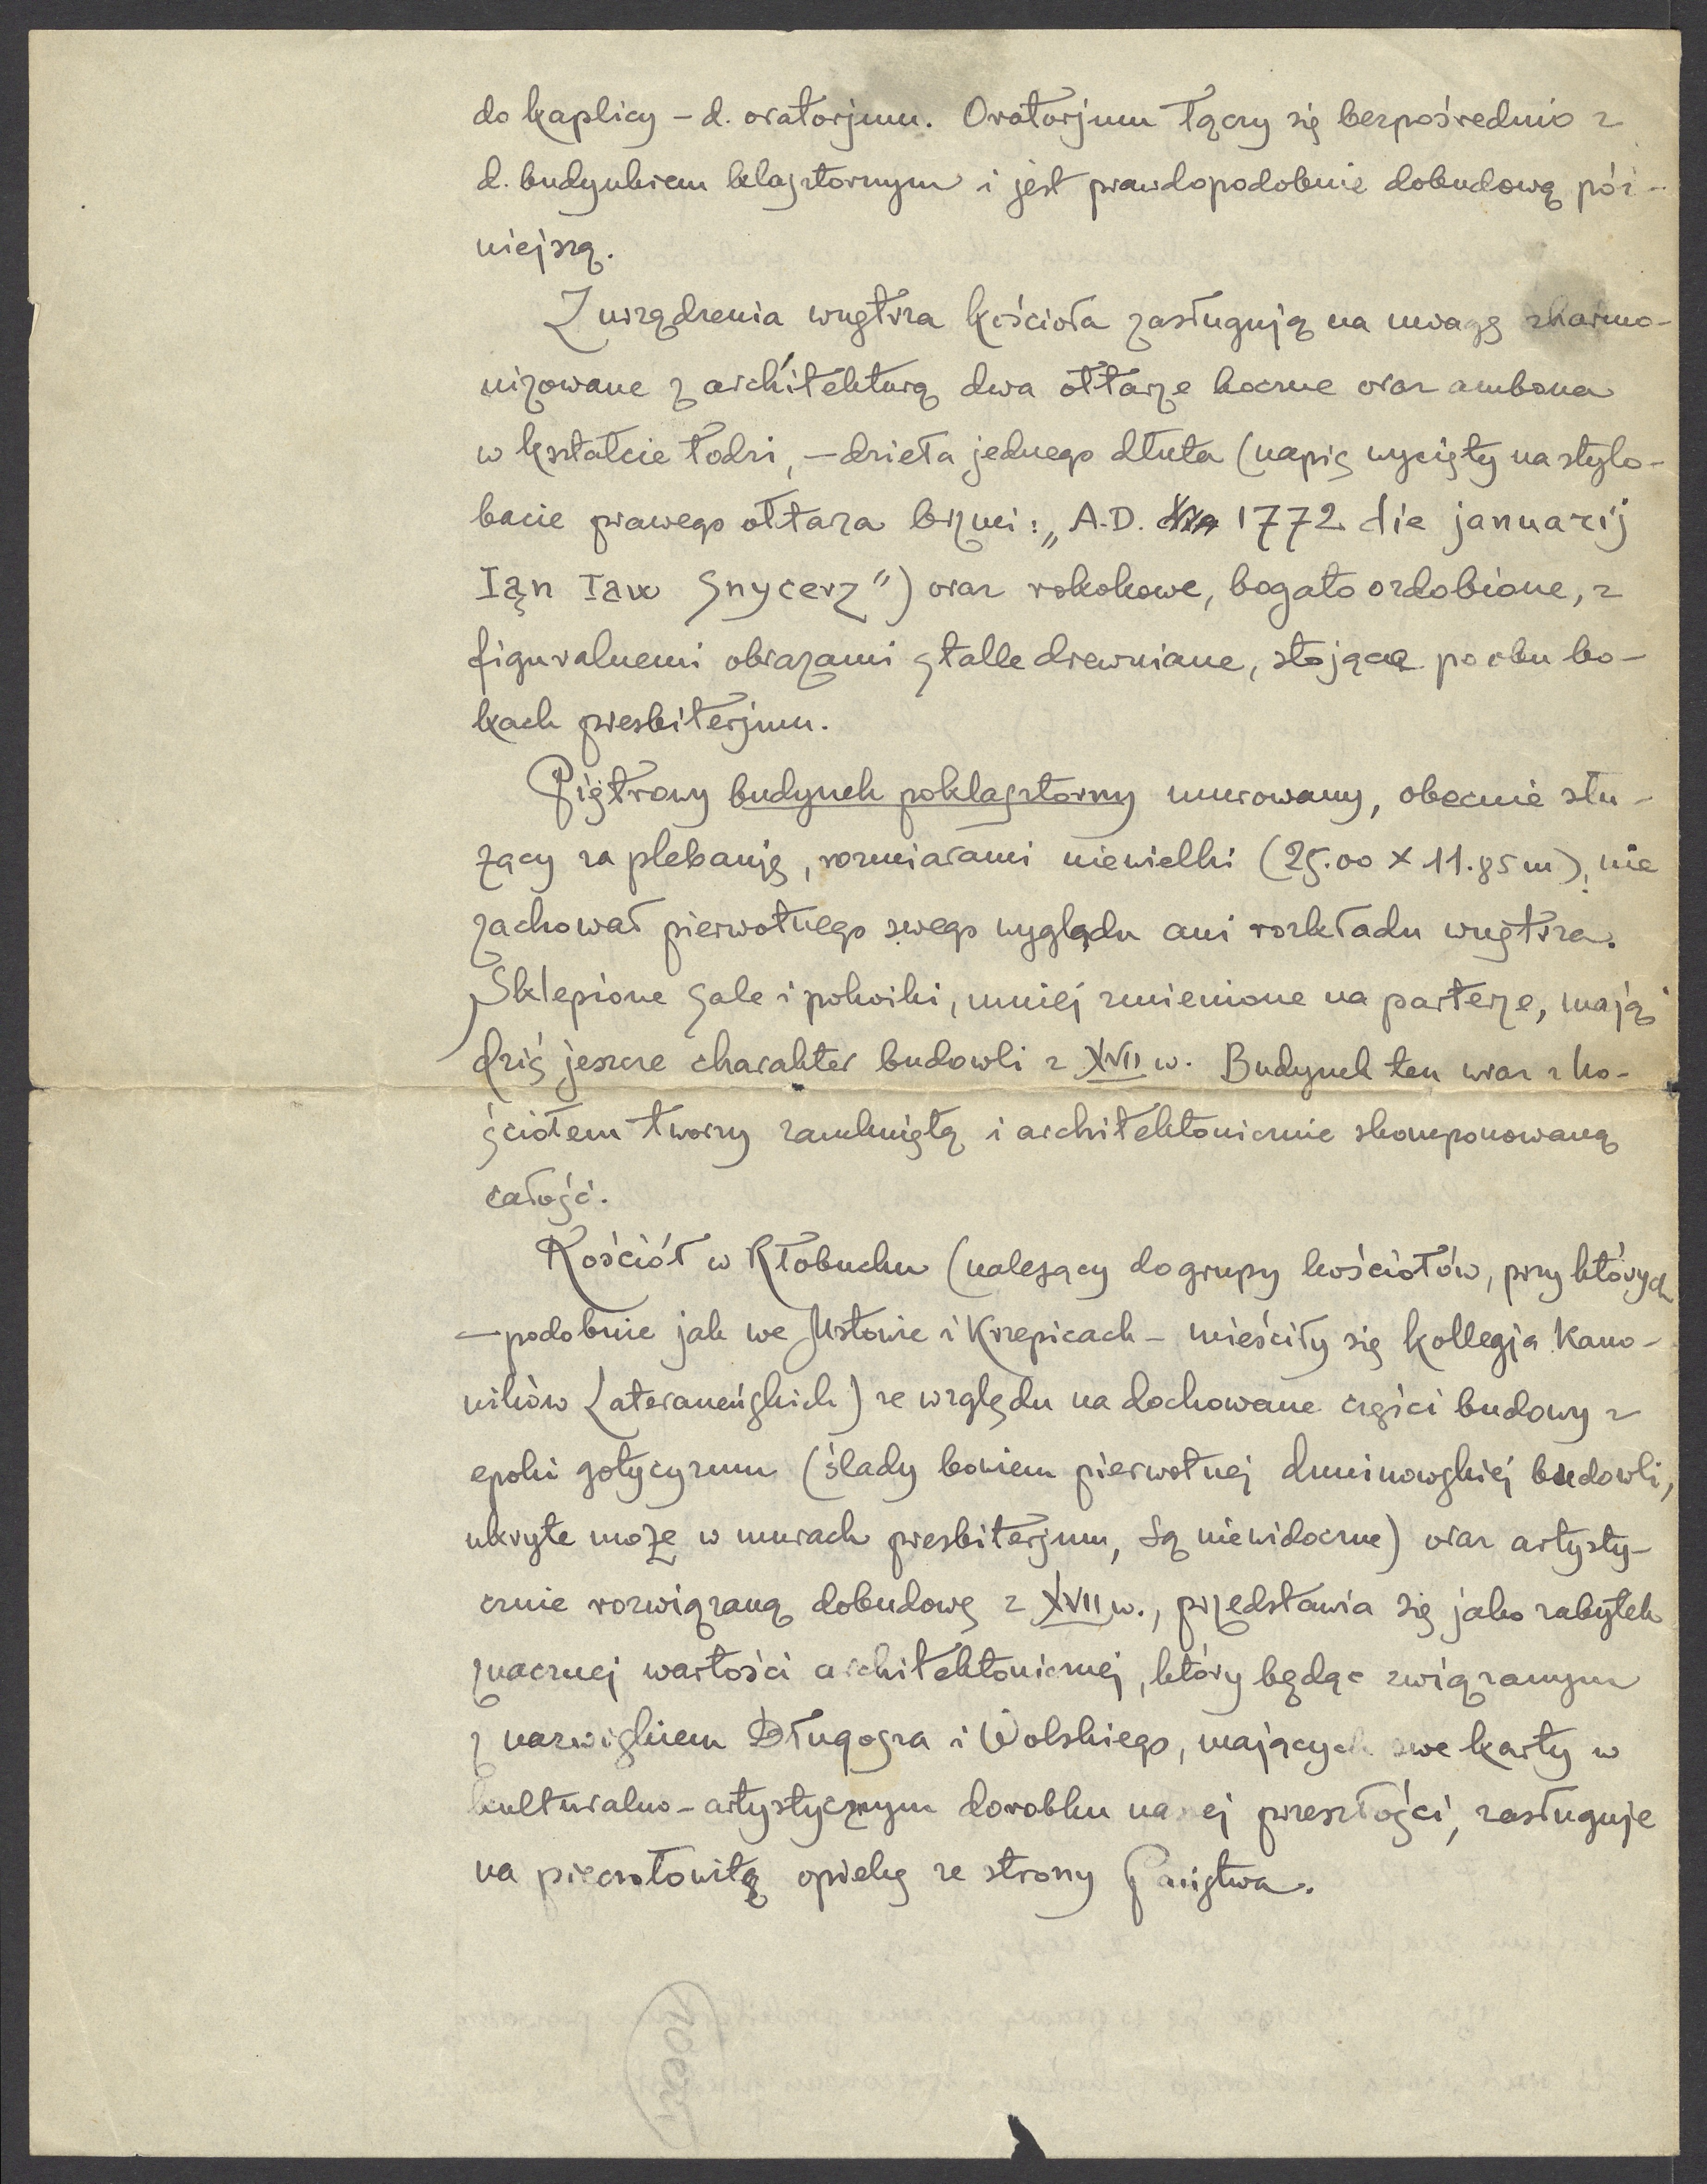 do kaplicy – d. oratorjum. Oratorjum łączy się bezpośrednio z
d. budynkiem klasztornym i jest prawdopodobnie dobudową póź-
niejszą.
Z urządzenia wnętrza kościoła zasługują na uwagę zharmo-
nizowane z architekturą dwa ołtarze boczne oraz ambona
w kształcie łodzi, – dzieła jednego dłuta (napis wycięty na stylo-
bacie prawego ołtarza brzmi: „A.D. 1772 die januarij
Ian Snycerz") oraz rokokowe, bogato ozdobione, z
figuralnemi obrazami stalle drewniane, stojące po obu bo-
kach presbiterjum.
Piętrowy budynek poklasztorny murowany, obecnie słu-
żący za plebanję, rozmiarami niewielki (25.00 x 11.85 m), nie
zachował pierwotnego swego wyglądu ani rozkładu wnętrza.
Sklepione sale i pokoiki, mniej zmienione na parterze, mają
dziś jeszcze charakter budowli z XVII w. Budynek ten wraz z ko-
ściołem tworzy zamkniętą i architektonicznie skomponowaną
całość.
Kościół w Kłobucku (należący do grupy kościołów, przy których
– podobnie jak we Mstowie i Krzepicach – mieściły się kollegja Kano-
ników Lateraneńskich) ze względu na dochowane części budowy z
epoki gotycyzmu (ślady bowiem pierwotnej duninowskiej budowli,
ukryte może w murach presbiterjum, są niewidoczne) oraz artysty-
cznie rozwiązaną dobudowę z XVII w., przedstawia się jako zabytek
znacznej wartości architektonicznej, który będąc związanym
z nazwiskiem Długosza i Wolskiego, mających swe karty w
kulturalno-artystycznym dorobku naszej przeszłości, zasługuje
na pieczołowitą opiekę ze strony Państwa.